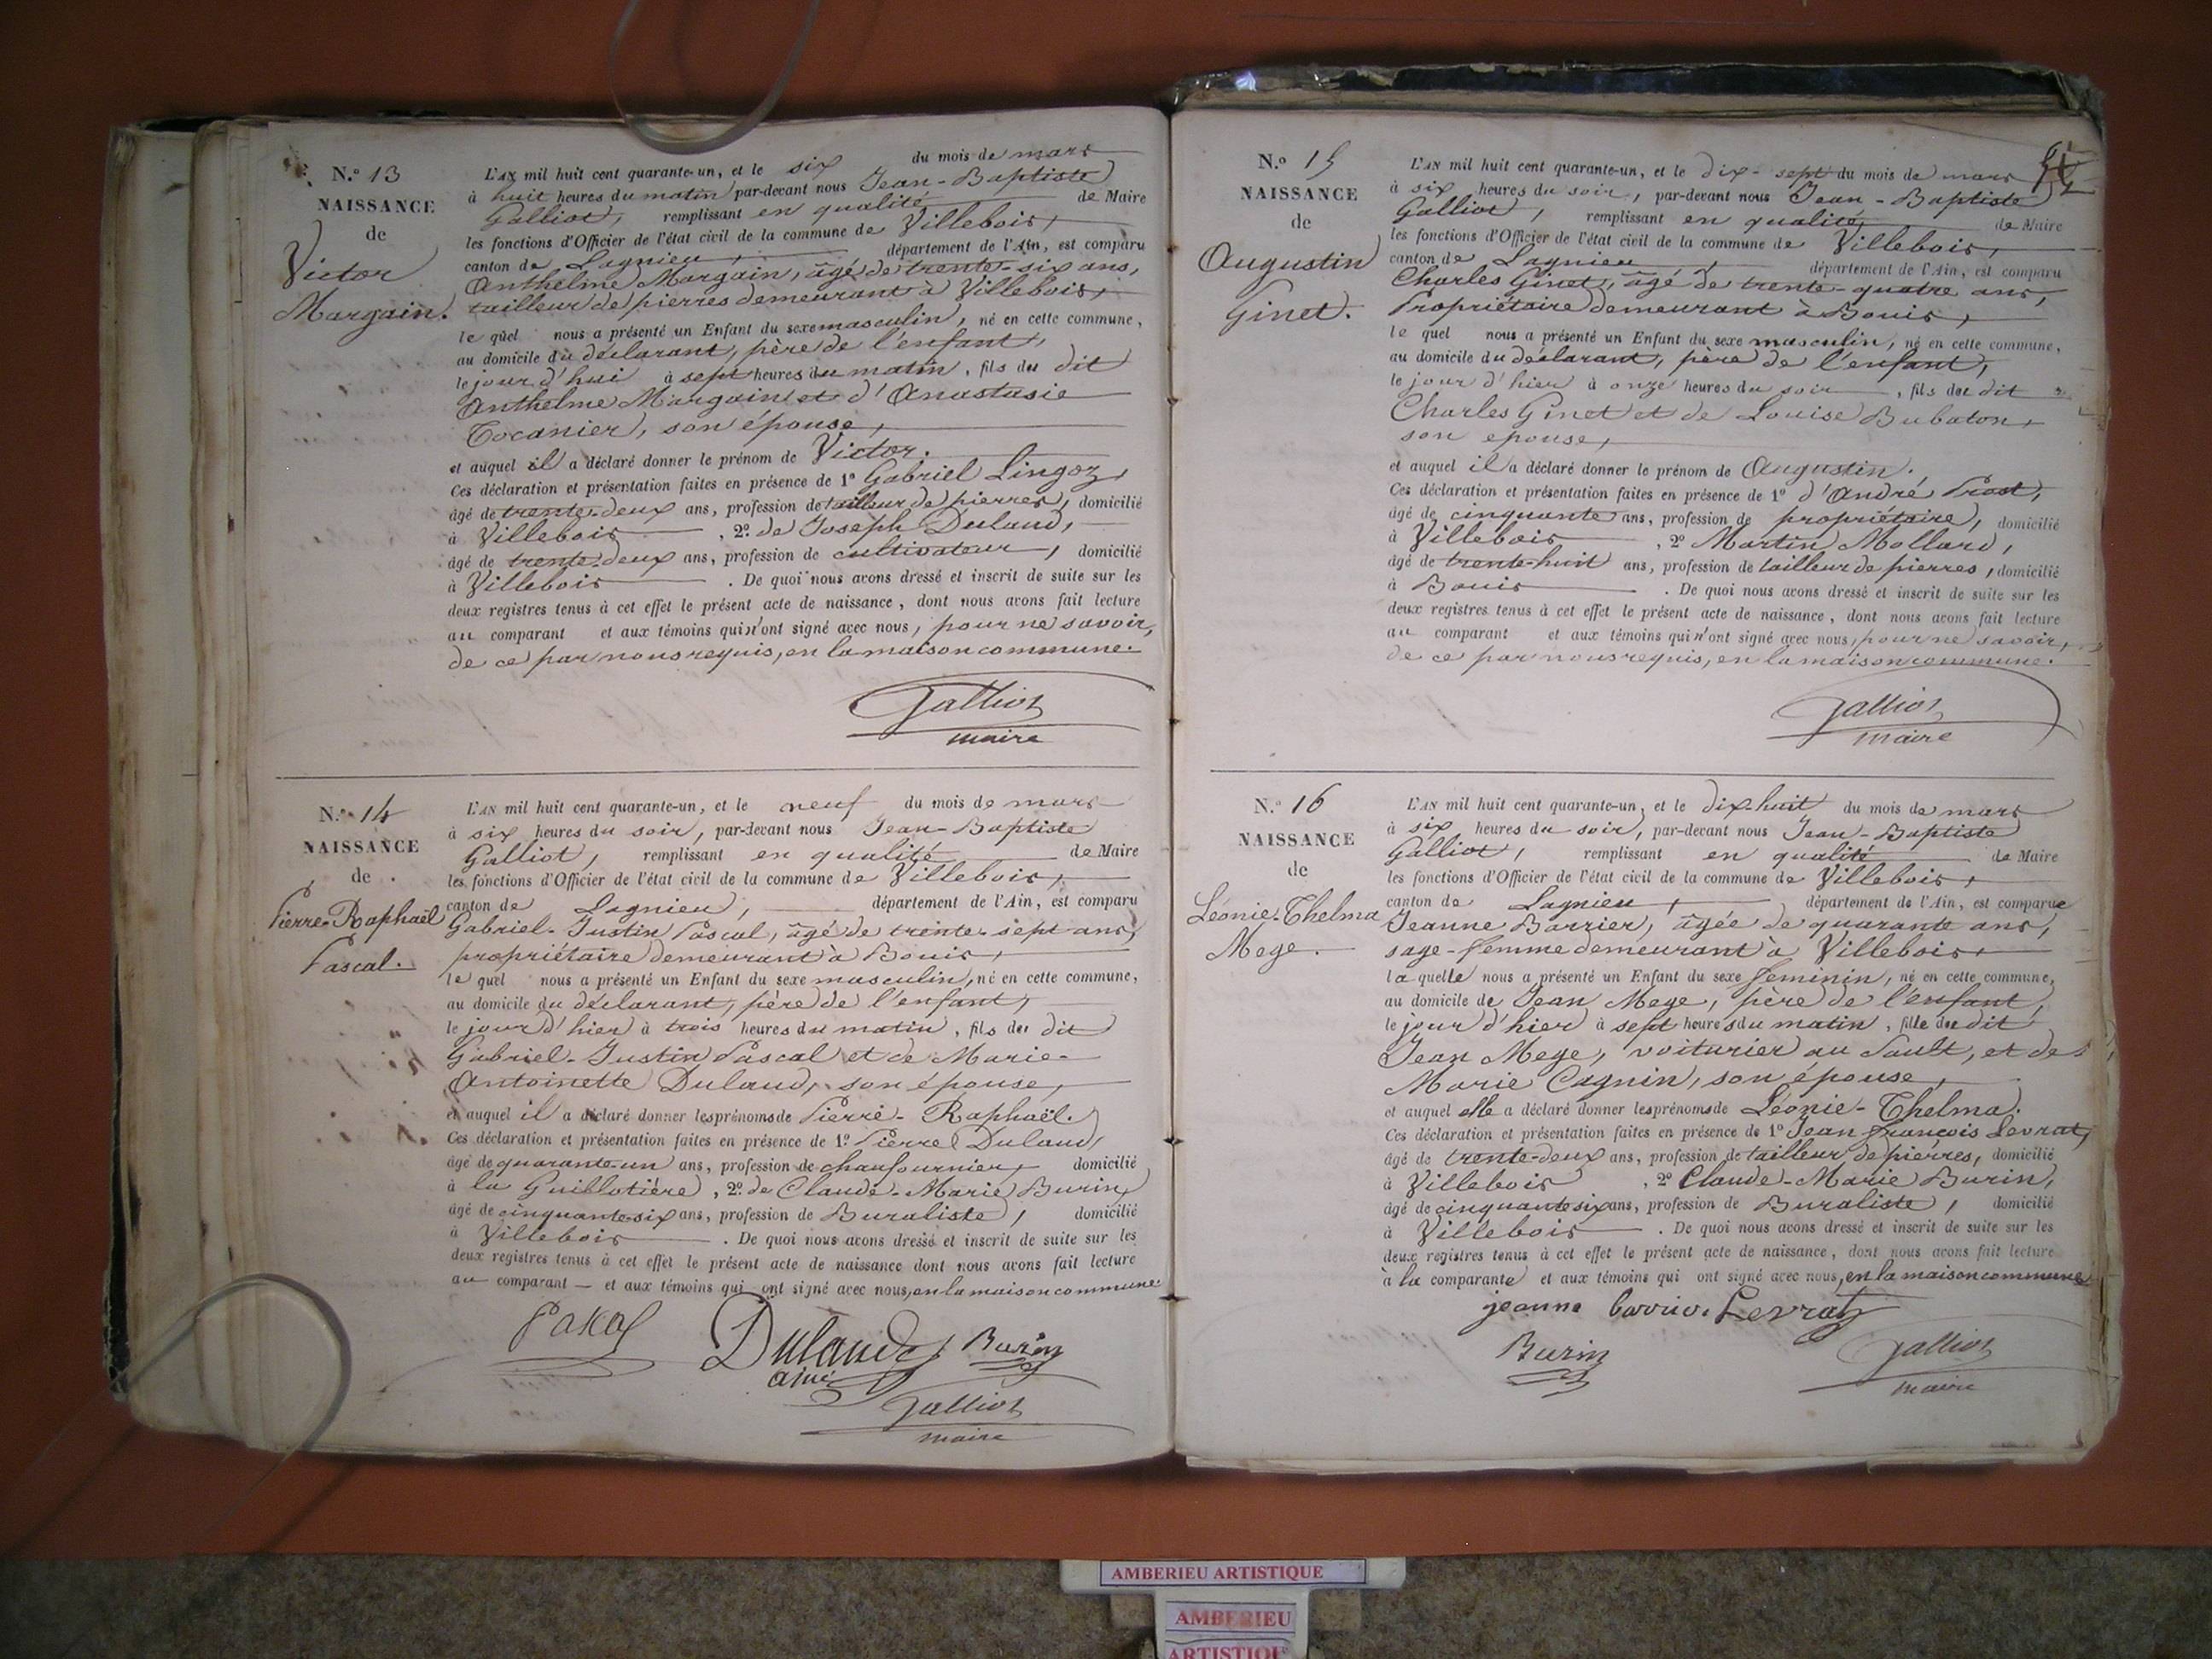 N.º 13
NAISSANCE
de
Victor
Margain.
L'AN mil huit cent quarante-un, et le six du mois de mars
à huit heures du matin par-devant nous Jean-Baptiste
Galliot, remplissant en qualité de Maire
les fonctions d'Officier de l'état civil de la commune de Villebois,
canton de Lagnieu, département de l'Ain, est comparu
Anthelme Margain, âgé de trente-six ans,
tailleur de pierres demeurant à Villebois,
le quel nous a présenté un Enfant du sexe masculin, né en cette commune,
au domicile du déclarant, père de l'enfant,
le jour d'hui à sept heures du matin, fils du dit
Anthelme Margain et d'Anastasie
Tocanier, son épouse,
et auquel il a déclaré donner le prénom de Victor.
Ces déclaration et présentation faites en présence de 1º Gabriel Lingoz,
âgé de trente-deux ans, profession de tailleur de pierres, domicilié
à Villebois, 2º de Joseph Dulaud,
âgé de trente-deux ans, profession de cultivateur, domicilié
à Villebois. De quoi nous avons dressé et inscrit de suite sur les
deux registres tenus à cet effet le présent acte de naissance, dont nous avons fait lecture
au comparant et aux témoins qui n'ont signé avec nous, pour ne savoir,
de ce par nous requis, en la maison commune.
Galliot
maire
N.º 14
NAISSANCE
de
Pierre-Raphaël
Pascal.
L'AN mil huit cent quarante-un, et le neuf du mois de mars
à six heures du soir, par-devant nous Jean-Baptiste
Galliot, remplissant en qualité de Maire
les fonctions d'Officier de l'état civil de la commune de Villebois,
canton de Lagnieu, département de l'Ain, est comparu
Gabriel-Justin Pascal, âgé de trente-sept ans,
propriétaire demeurant à Bouis,
le quel nous a présenté un Enfant du sexe masculin, né en cette commune,
au domicile du déclarant, père de l'enfant,
le jour d'hier à trois heures du matin, fils du dit
Gabriel-Justin Pascal et de Marie-
Antoinette Dulaud, son épouse,
et auquel il a déclaré donner les prénoms de Pierre-Raphaël.
Ces déclaration et présentation faites en présence de 1º Pierre Dulaud,
âgé de quarante-un ans, profession de chaufournier, domicilié
à la Guillotière, 2º de Claude-Marie Burin,
âgé de cinquante-six ans, profession de Buraliste, domicilié
à Villebois. De quoi nous avons dressé et inscrit de suite sur les
deux registres tenus à cet effet le présent acte de naissance dont nous avons fait lecture
au comparant — et aux témoins qui ont signé avec nous, en la maison commune.
Pascal
Dulaud Burin
ainé
Galliot
maire
N.º 15
NAISSANCE
de
Augustin
Ginet.
L'AN mil huit cent quarante-un, et le dix-sept du mois de mars
à six heures du soir, par-devant nous Jean-Baptiste
Galliot, remplissant en qualité de Maire
les fonctions d'Officier de l'état civil de la commune de Villebois,
canton de Lagnieu, département de l'Ain, est comparu
Charles Ginet, âgé de trente-quatre ans,
Propriétaire demeurant à Bouis,
le quel nous a présenté un Enfant du sexe masculin, né en cette commune,
au domicile du déclarant, père de l'enfant,
le jour d'hier à onze heures du soir, fils du dit
Charles Ginet et de Louise Bubaton,
son epouse,
et auquel il a déclaré donner le prénom de Augustin.
Ces déclaration et présentation faites en présence de 1º d'André Prost,
âgé de cinquante ans, profession de propriétaire, domicilié
à Villebois, 2º Martin Mollard,
âgé de trente-huit ans, profession de tailleur de pierres, domicilié
à Bouis. De quoi nous avons dressé et inscrit de suite sur les
deux registres tenus à cet effet le présent acte de naissance, dont nous avons fait lecture
au comparant et aux témoins qui n'ont signé avec nous, pour ne savoir,
de ce par nous requis, en la maison commune.
Galliot
maire
N.º 16
NAISSANCE
de
Léonie-Thelma
Mege.
L'AN mil huit cent quarante-un, et le dix-huit du mois de mars
à six heures du soir, par-devant nous Jean-Baptiste
Galliot, remplissant en qualité de Maire
les fonctions d'Officier de l'état civil de la commune de Villebois,
canton de Lagnieu, département de l'Ain, est comparue
Jeanne Barrier, âgée de quarante ans,
sage-femme demeurant à Villebois,
la quelle nous a présenté un Enfant du sexe feminin, né en cette commune,
au domicile de Jean Mege, père de l'enfant,
le jour d'hier à sept heures du matin, fille du dit
Jean Mege, voiturier au Sault, et de
Marie Cagnin, son épouse,
et auquel elle a déclaré donner les prénoms de Léonie-Thelma.
Ces déclaration et présentation faites en présence de 1º Jean François Levrat,
âgé de trente-deux ans, profession de tailleur de pierres, domicilié
à Villebois, 2º Claude-Marie Burin,
âgé de cinquante six ans, profession de Buraliste, domicilié
à Villebois. De quoi nous avons dressé et inscrit de suite sur les
deux registres tenus à cet effet le présent acte de naissance, dont nous avons fait lecture
à la comparante et aux témoins qui ont signé avec nous, en la maison commune
jeanne barrier Levrat
Burin
Galliot
maire
AMBERIEU ARTISTIQUE
AMBERIEU
ARTISTIQUE